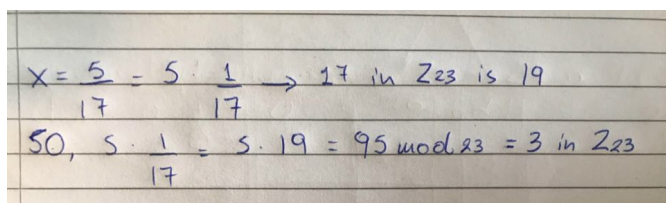 x = 5/17 = 5 · 1/17 → 17 in Z23 is 19
SO, 5 · 1/17 = 5 · 19 = 95 mod 23 = 3 in Z23